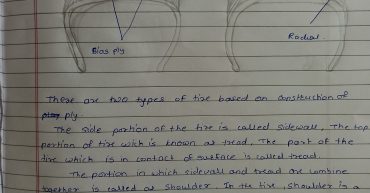 Bias ply
Radial.
There are two types of tire based on construction of
ply
The side portion of the tire is called sidewall, The top
portion of tire wich is known as tread, The part of the
tire which is in contact of surface is called tread.
The portion in which sidewall and tread are combine
together is called as shoulder. In the tire, shoulder is a